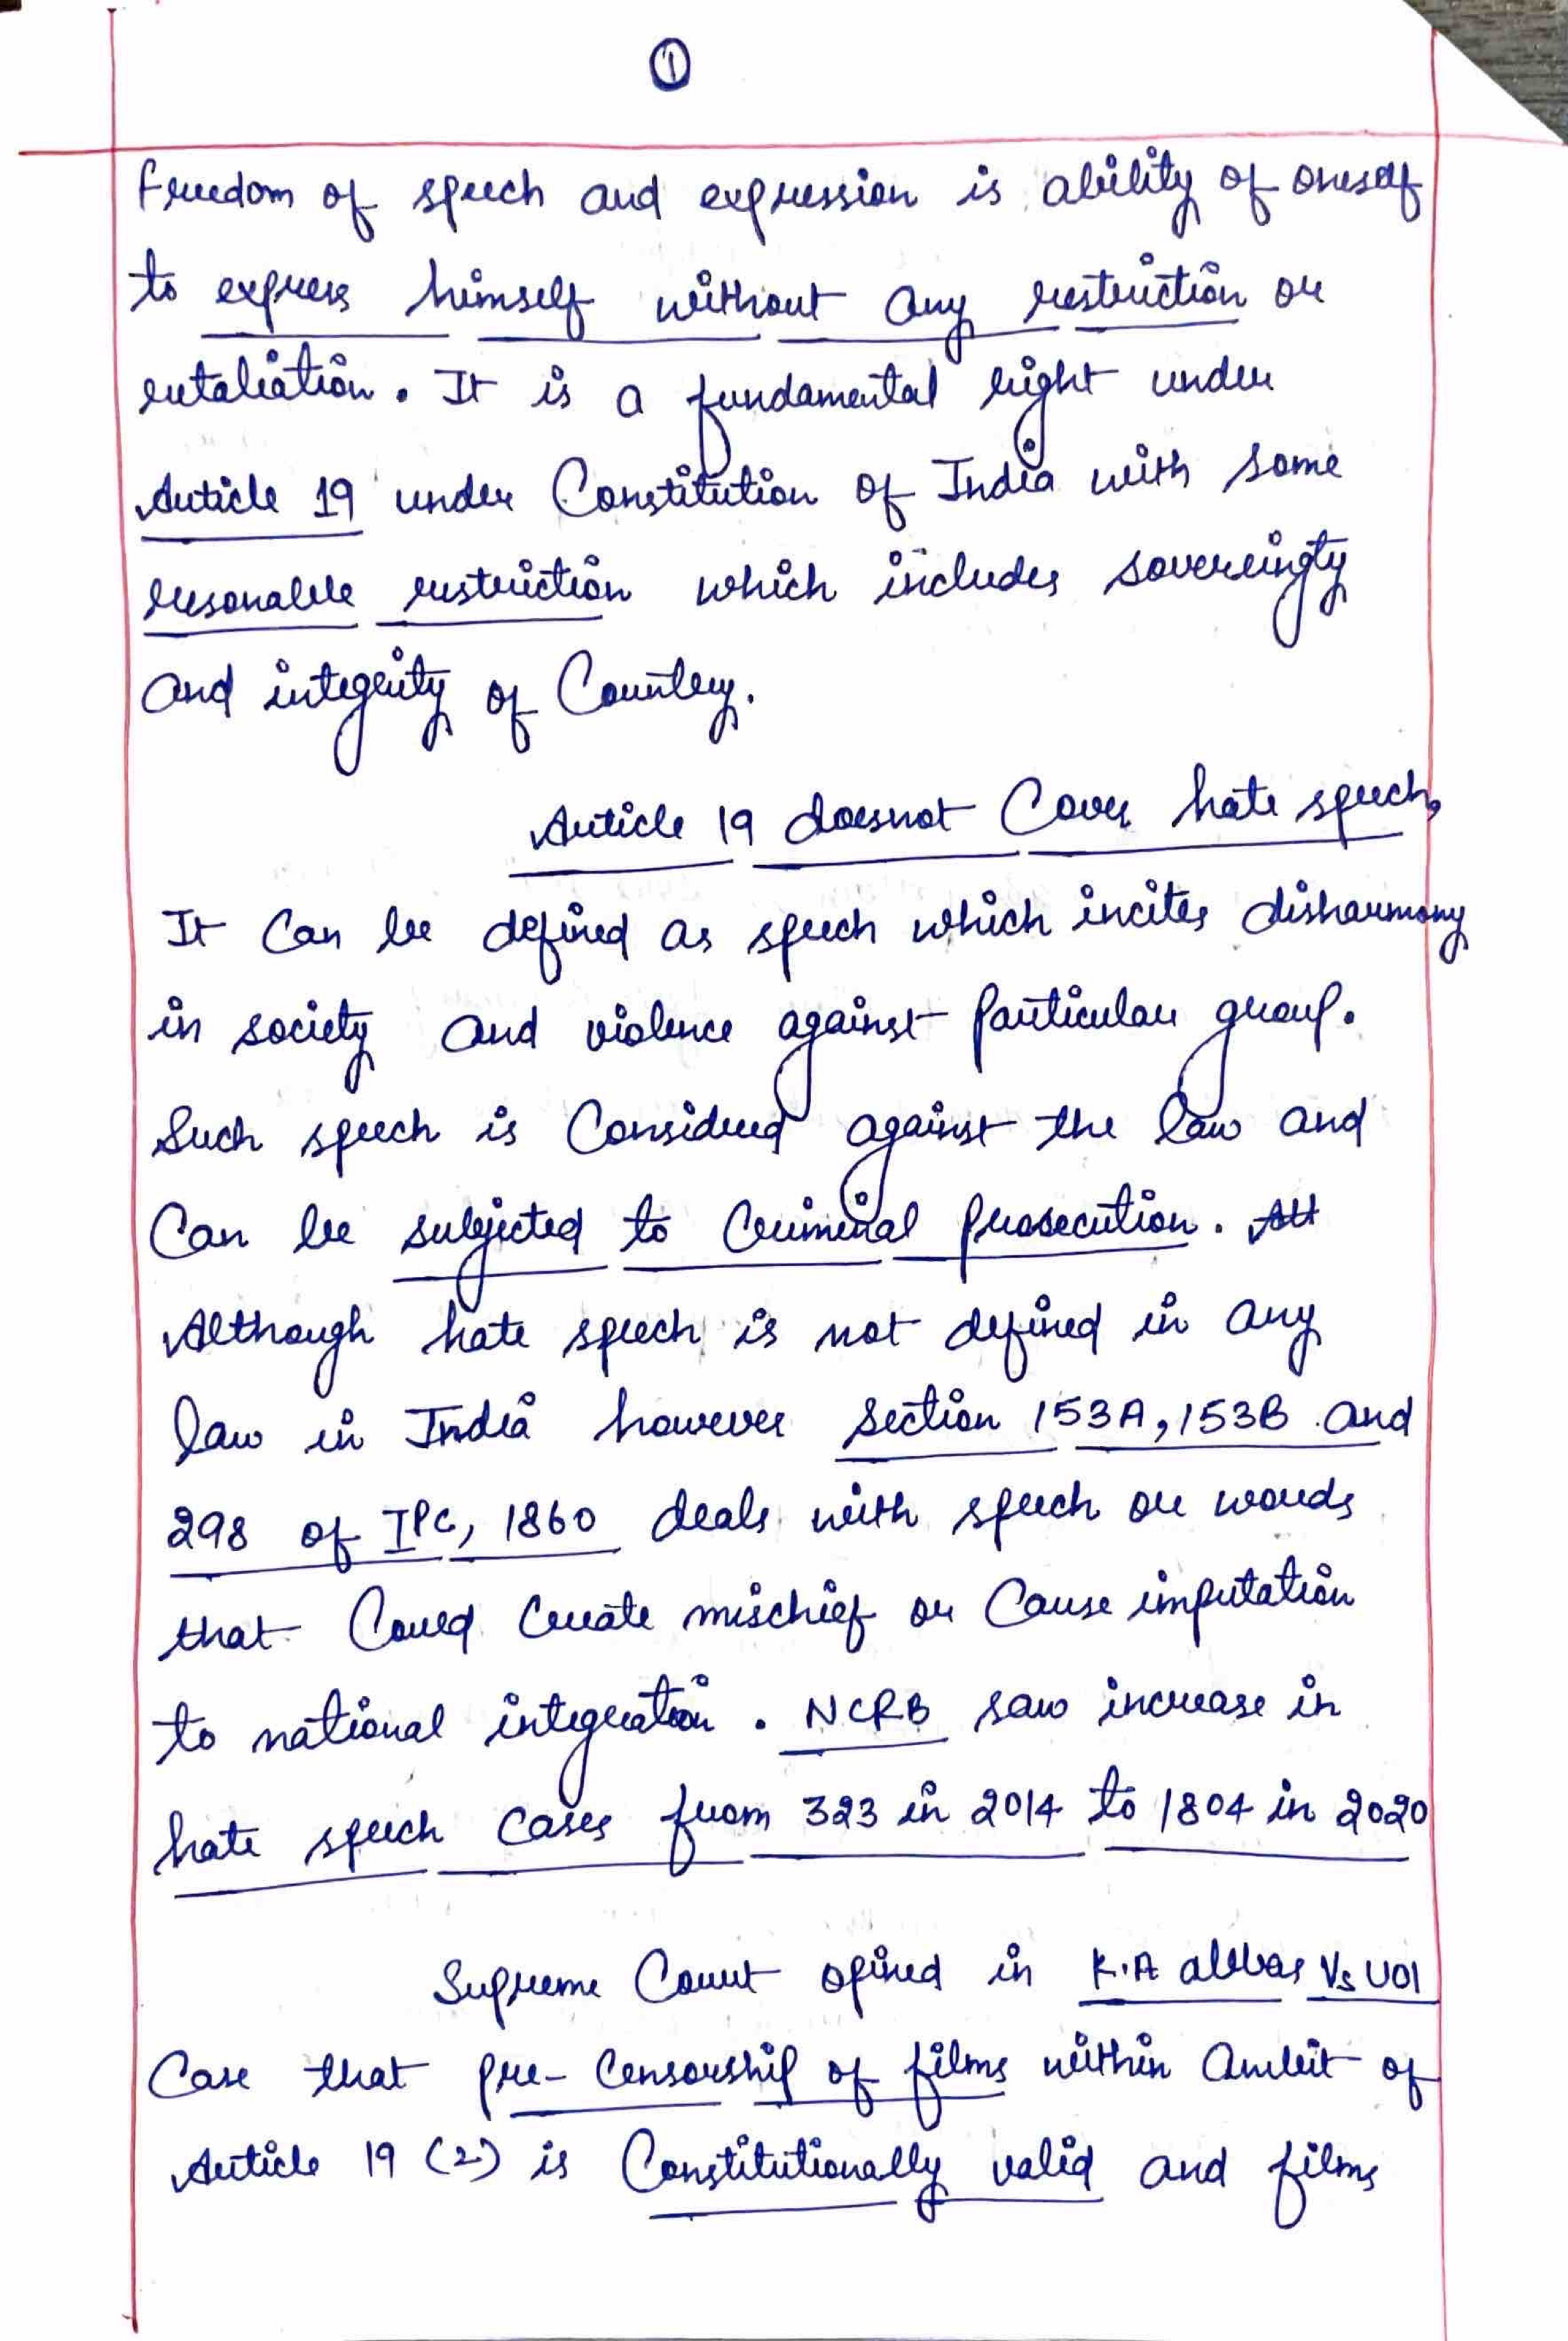 1
Freedom of speech and expression is ability of oneself
to express himself without any restriction or
retaliation. It is a fundamental right under
Article 19 under Constitution of India with some
resonable restriction which includes sovereingty
and integrity of Country.
Article 19 doesnot Cover hate speech,
It Can be defined as speech which incites disharmony
in society and violence against particular group.
Such speech is Considered against the law and
Can be subjected to Criminal prosecution. Alt
Although hate speech is not defined in any
law in India however section 153A, 153B and
298 of IPC, 1860 deals with speech or words
that Could Create mischief or Cause imputation
to national integration. NCRB saw increase in
hate speech cases from 323 in 2014 to 1804 in 2020
Supreme Court opined in K.A abbas Vs UOI
Case that pre-Censorship of films within ambit of
Article 19 (2) is Constitutionally valid and films